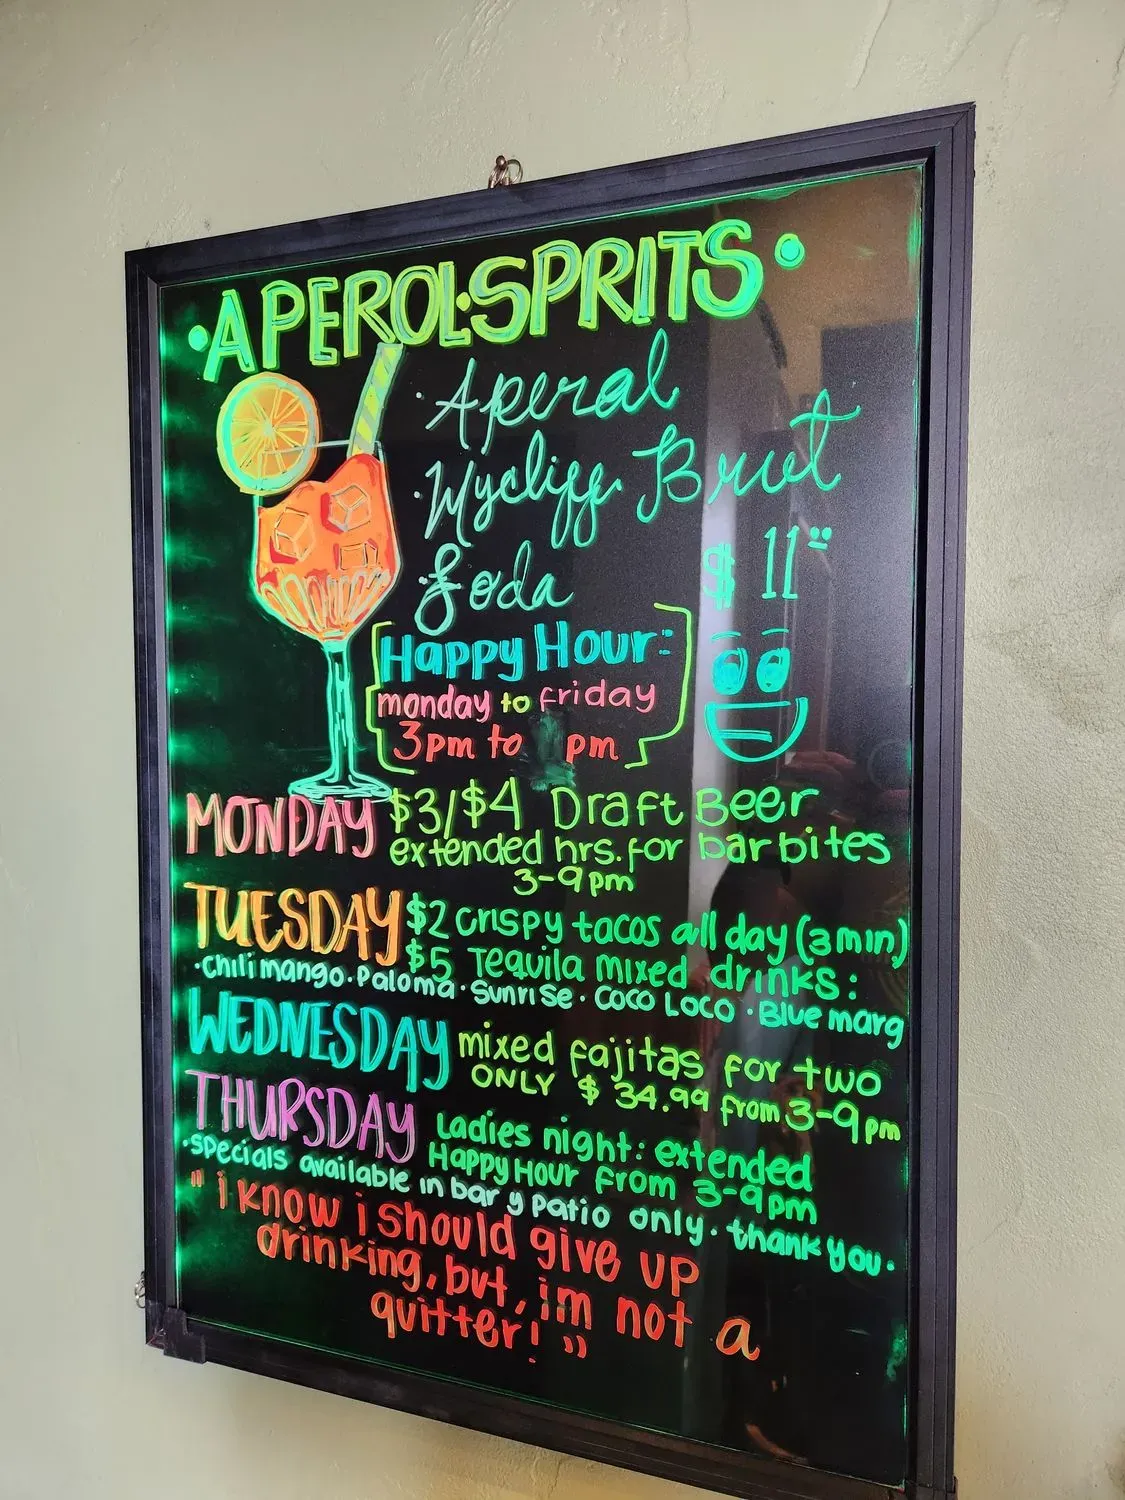 • APEROL•SPRITS •
• Aperal
• Wycliff Brut
• Soda
$ 11°°
Happy Hour:
monday to friday
3pm to pm
MONDAY $3/$4 Draft Beer
extended hrs. for bar bites
3-9pm
TUESDAY $2 crispy tacos all day (3 min)
$5 Tequila mixed drinks:
• chili mango • Paloma • Sunrise • Coco Loco • Blue marg
WEDNESDAY mixed fajitas for two
ONLY $ 34.99 from 3-9pm
THURSDAY Ladies night: extended
Happy Hour from 3-9pm
• specials available in bar y patio only. thank you.
"i know i should give up
drinking, but, im not a
quitter! "